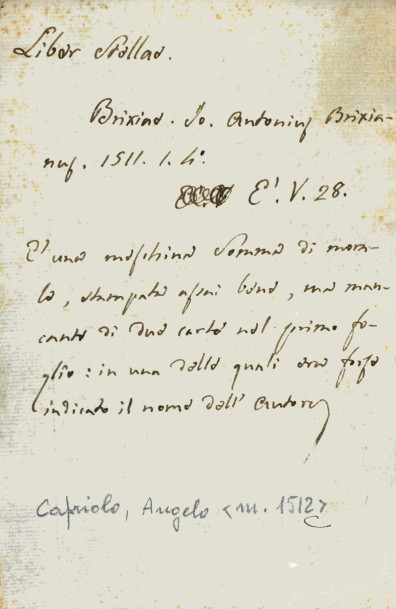 Liber Stellae.
Brixiae. Jo. Antonius Brixia-
nus. 1511. 1. 4°.
E'. V. 28.
E' una meschina Somma di mora-
le, stampata assai bene, ma man-
cante di due carte nel primo fo-
glio: in una delle quali era forse
indicato il nome dell' Autore
Capriolo, Angelo <m. 1512>